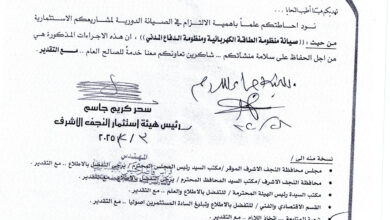 تهديكم هيئتنا أطيب التحايا ..
نود احاطتكم علماً بأهمية الالتزام في الصيانة الدورية لمشاريعكم الاستثمارية
من حيث ، (صيانة منظومة الطاقة الكهربائية ومنظومة الدفاع المدني) ، ان هذه الاجراءات المذكورة هي
من اجل الحفاظ على سلامة منشأتكم .. شاكرين تعاونكم معنا خدمة للصالح العام .. مع التقدير .
سحر كريم جاسم
رئيس هيئة استثمار النجف الأشرف
٢٠٢٥
المهندس
نسخة منه الى /
مجلس محافظة النجف الاشرف الموقر / مكتب السيد رئيس المجلس المحترم / يرجى التفضل بالاطلاع .. مع التقدير .
محافظة النجف الاشرف / مكتب السيد المحافظ المحترم / يرجى التفضل بالاطلاع .. مع التقدير .
مكتب السيدة رئيس الهيئة المحترمة / للتفضل بالاطلاع والعلم .. مع التقدير .
القسم الاقتصادي والفني / للتفضل بالاطلاع وتبليغ السادة المستثمرين اصوليا .. مع التقدير .